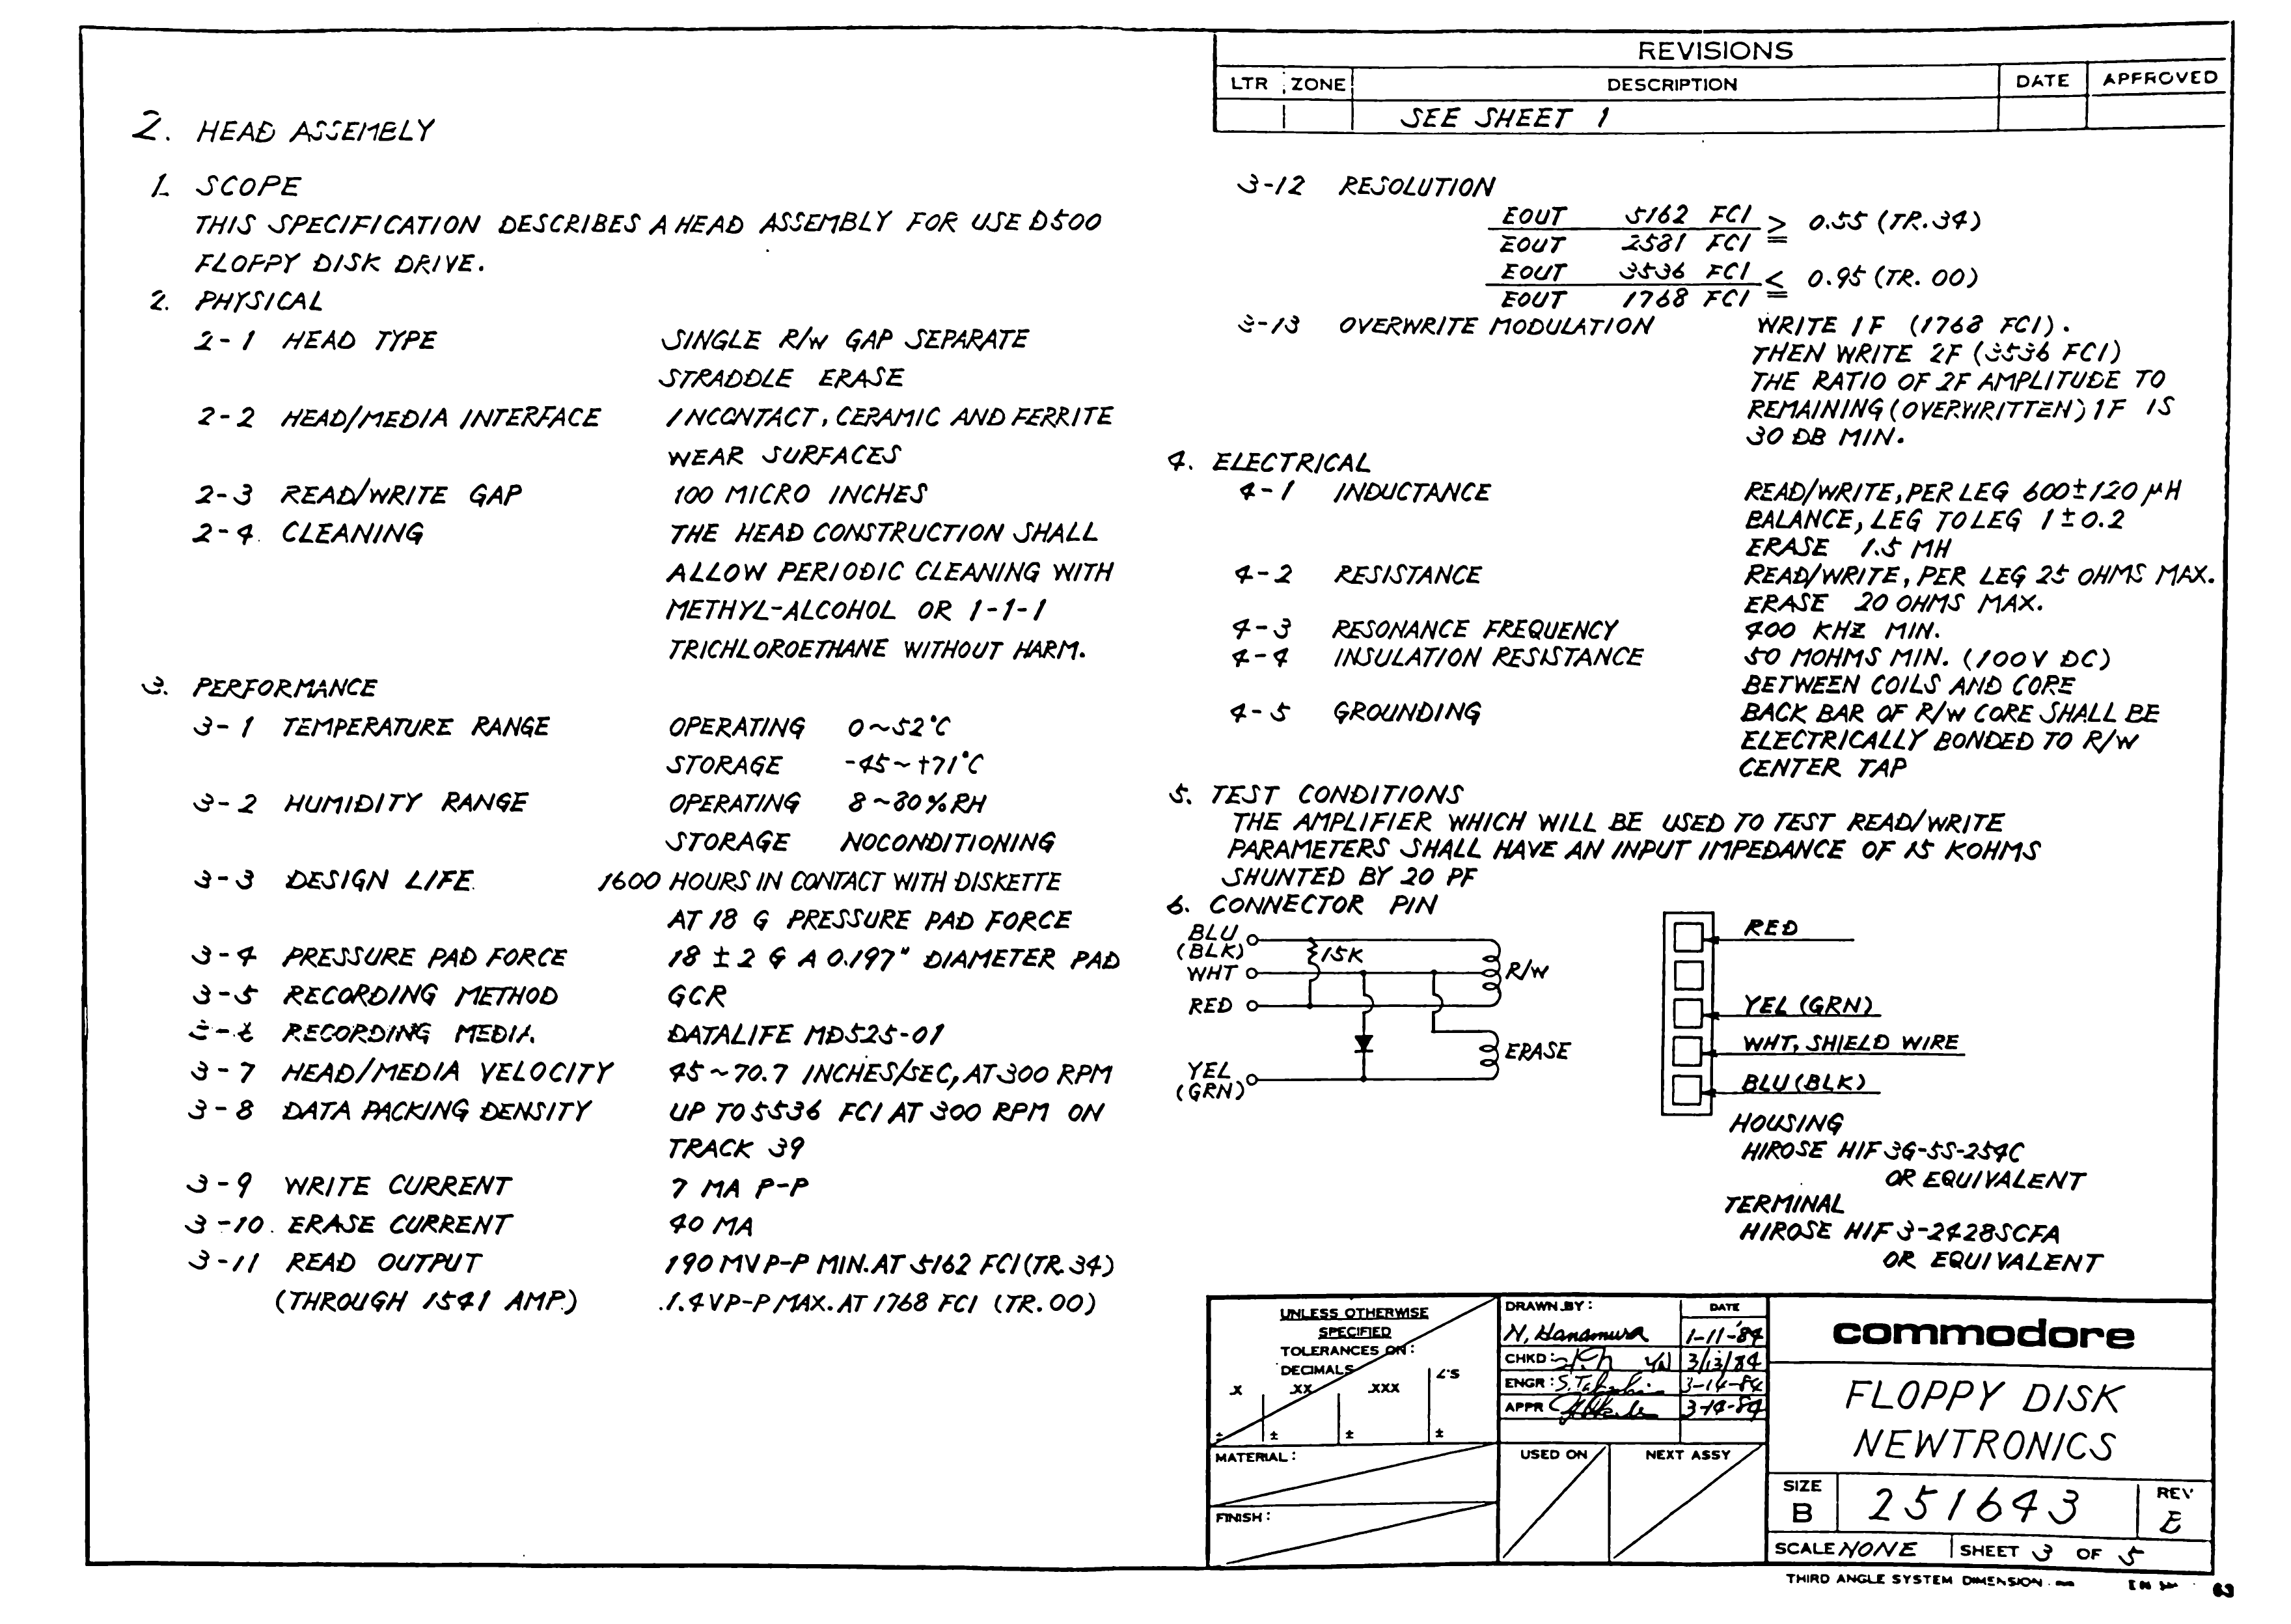 REVISIONS
LTR ZONE DESCRIPTION DATE APPROVED
SEE SHEET 1
2. HEAD ASSEMBLY
1. SCOPE
THIS SPECIFICATION DESCRIBES A HEAD ASSEMBLY FOR USE D500
FLOPPY DISK DRIVE.
2. PHYSICAL
2-1 HEAD TYPE SINGLE R/W GAP SEPARATE
STRADDLE ERASE
2-2 HEAD/MEDIA INTERFACE INCONTACT, CERAMIC AND FERRITE
WEAR SURFACES
2-3 READ/WRITE GAP 100 MICRO INCHES
2-4 CLEANING THE HEAD CONSTRUCTION SHALL
ALLOW PERIODIC CLEANING WITH
METHYL-ALCOHOL OR 1-1-1
TRICHLOROETHANE WITHOUT HARM.
3. PERFORMANCE
3-1 TEMPERATURE RANGE OPERATING 0~52°C
STORAGE -45~+71°C
3-2 HUMIDITY RANGE OPERATING 8~80%RH
STORAGE NOCONDITIONING
3-3 DESIGN LIFE 1600 HOURS IN CONTACT WITH DISKETTE
AT 18 G PRESSURE PAD FORCE
3-4 PRESSURE PAD FORCE 18 ± 2 G A 0.197" DIAMETER PAD
3-5 RECORDING METHOD GCR
3-6 RECORDING MEDIA DATALIFE MD525-01
3-7 HEAD/MEDIA VELOCITY 45~70.7 INCHES/SEC, AT 300 RPM
3-8 DATA PACKING DENSITY UP TO 5536 FCI AT 300 RPM ON
TRACK 39
3-9 WRITE CURRENT 7 MA P-P
3-10. ERASE CURRENT 40 MA
3-11 READ OUTPUT 190 MVP-P MIN. AT 5162 FCI (TR. 34)
(THROUGH 1541 AMP.) 1.4VP-P MAX. AT 1768 FCI (TR. 00)
3-12 RESOLUTION
EOUT 5162 FCI ≧ 0.55 (TR. 34)
EOUT 2581 FCI
EOUT 3536 FCI ≦ 0.95 (TR. 00)
EOUT 1768 FCI
3-13 OVERWRITE MODULATION WRITE 1F (1768 FCI).
THEN WRITE 2F (3536 FCI)
THE RATIO OF 2F AMPLITUDE TO
REMAINING (OVERWRITTEN) 1F IS
30 DB MIN.
4. ELECTRICAL
4-1 INDUCTANCE READ/WRITE, PER LEG 600±120 μH
BALANCE, LEG TO LEG 1±0.2
ERASE 1.5 MH
4-2 RESISTANCE READ/WRITE, PER LEG 25 OHMS MAX.
ERASE 20 OHMS MAX.
4-3 RESONANCE FREQUENCY 400 KHZ MIN.
4-4 INSULATION RESISTANCE 50 MOHMS MIN. (100V DC)
BETWEEN COILS AND CORE
4-5 GROUNDING BACK BAR OF R/W CORE SHALL BE
ELECTRICALLY BONDED TO R/W
CENTER TAP
5. TEST CONDITIONS
THE AMPLIFIER WHICH WILL BE USED TO TEST READ/WRITE
PARAMETERS SHALL HAVE AN INPUT IMPEDANCE OF 15 KOHMS
SHUNTED BY 20 PF
6. CONNECTOR PIN
BLU
(BLK)
15K
WHT
R/W
RED
ERASE
YEL
(GRN)
RED
YEL (GRN)
WHT, SHIELD WIRE
BLU (BLK)
HOUSING
HIROSE HIF 3G-5S-254C
OR EQUIVALENT
TERMINAL
HIROSE HIF 3-2428SCFA
OR EQUIVALENT
UNLESS OTHERWISE
SPECIFIED
TOLERANCES ON:
DECIMALS
.X .XX .XXX ∠'S
± ± ± ±
MATERIAL:
FINISH:
DRAWN BY: DATE
N. Hanamura 1-11-'84
CHKD: 3/13/84
ENGR: 3-14-84
APPR 3-14-84
USED ON NEXT ASSY
commodore
FLOPPY DISK
NEWTRONICS
SIZE
B
251643
REV
E
SCALE NONE SHEET 3 OF 5
THIRD ANGLE SYSTEM DIMENSION